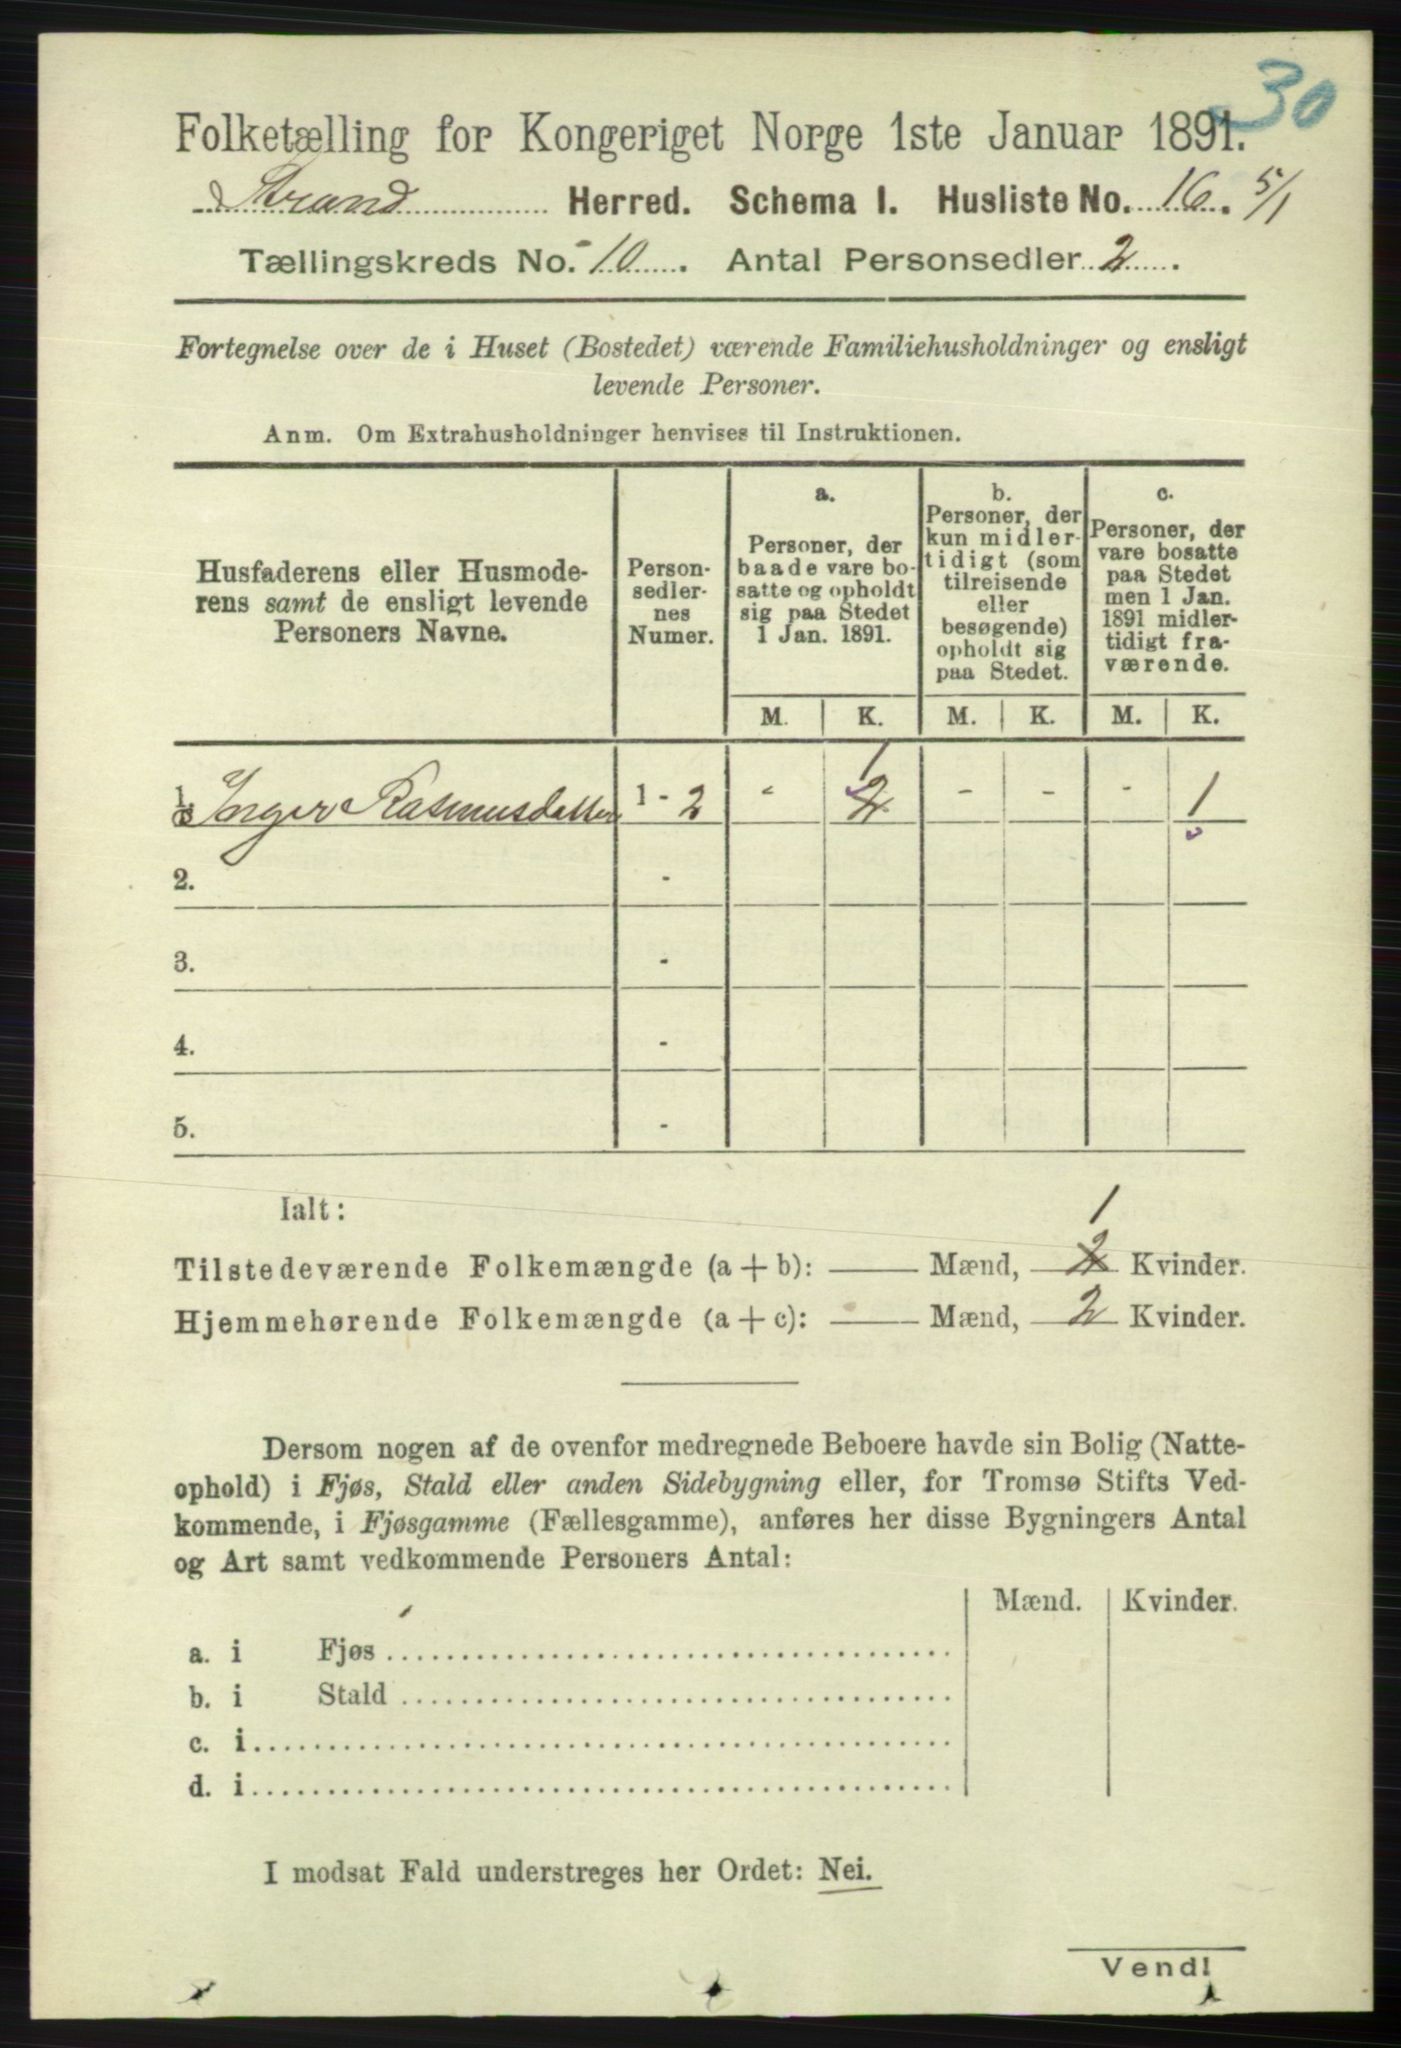 30
Folketælling for Kongeriget Norge 1ste Januar 1891.
Strand Herred. Schema I. Husliste No. 16. 5/1
Tællingskreds No. 10. Antal Personsedler 2.
Fortegnelse over de i Huset (Bostedet) værende Familiehusholdninger og ensligt
levende Personer.
Anm. Om Extrahusholdninger henvises til Instruktionen.
Husfaderens eller Husmode-
rens samt de ensligt levende
Personers Navne.
Person-
sedler-
nes
Numer.
a.
Personer, der
baade vare bo-
satte og opholdt
sig paa Stedet
1 Jan. 1891.
b.
Personer, der
kun midler-
tidigt (som
tilreisende
eller
besøgende)
opholdt sig
paa Stedet.
c.
Personer, der
vare bosatte
paa Stedet
men 1 Jan.
1891 midler-
tidigt fra-
værende.
M. K. M. K. M. K.
1
1. Inger Rasmusdatter 1 - 2 - 2 - - - 1
2. -
3. -
4. -
5. -
Ialt: 1
Tilstedeværende Folkemængde (a + b): — Mænd, 2 Kvinder.
Hjemmehørende Folkemængde (a + c): — Mænd, 2 Kvinder.
Dersom nogen af de ovenfor medregnede Beboere havde sin Bolig (Natte-
ophold) i Fjøs, Stald eller anden Sidebygning eller, for Tromsø Stifts Ved-
kommende, i Fjøsgamme (Fællesgamme), anføres her disse Bygningers Antal
og Art samt vedkommende Personers Antal:
Mænd. Kvinder.
a. i Fjøs
b. i Stald
c. i
d. i
I modsat Fald understreges her Ordet: Nei.
Vend!